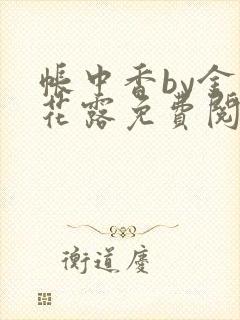 帐中香by金
花露免費閱
衡道慶